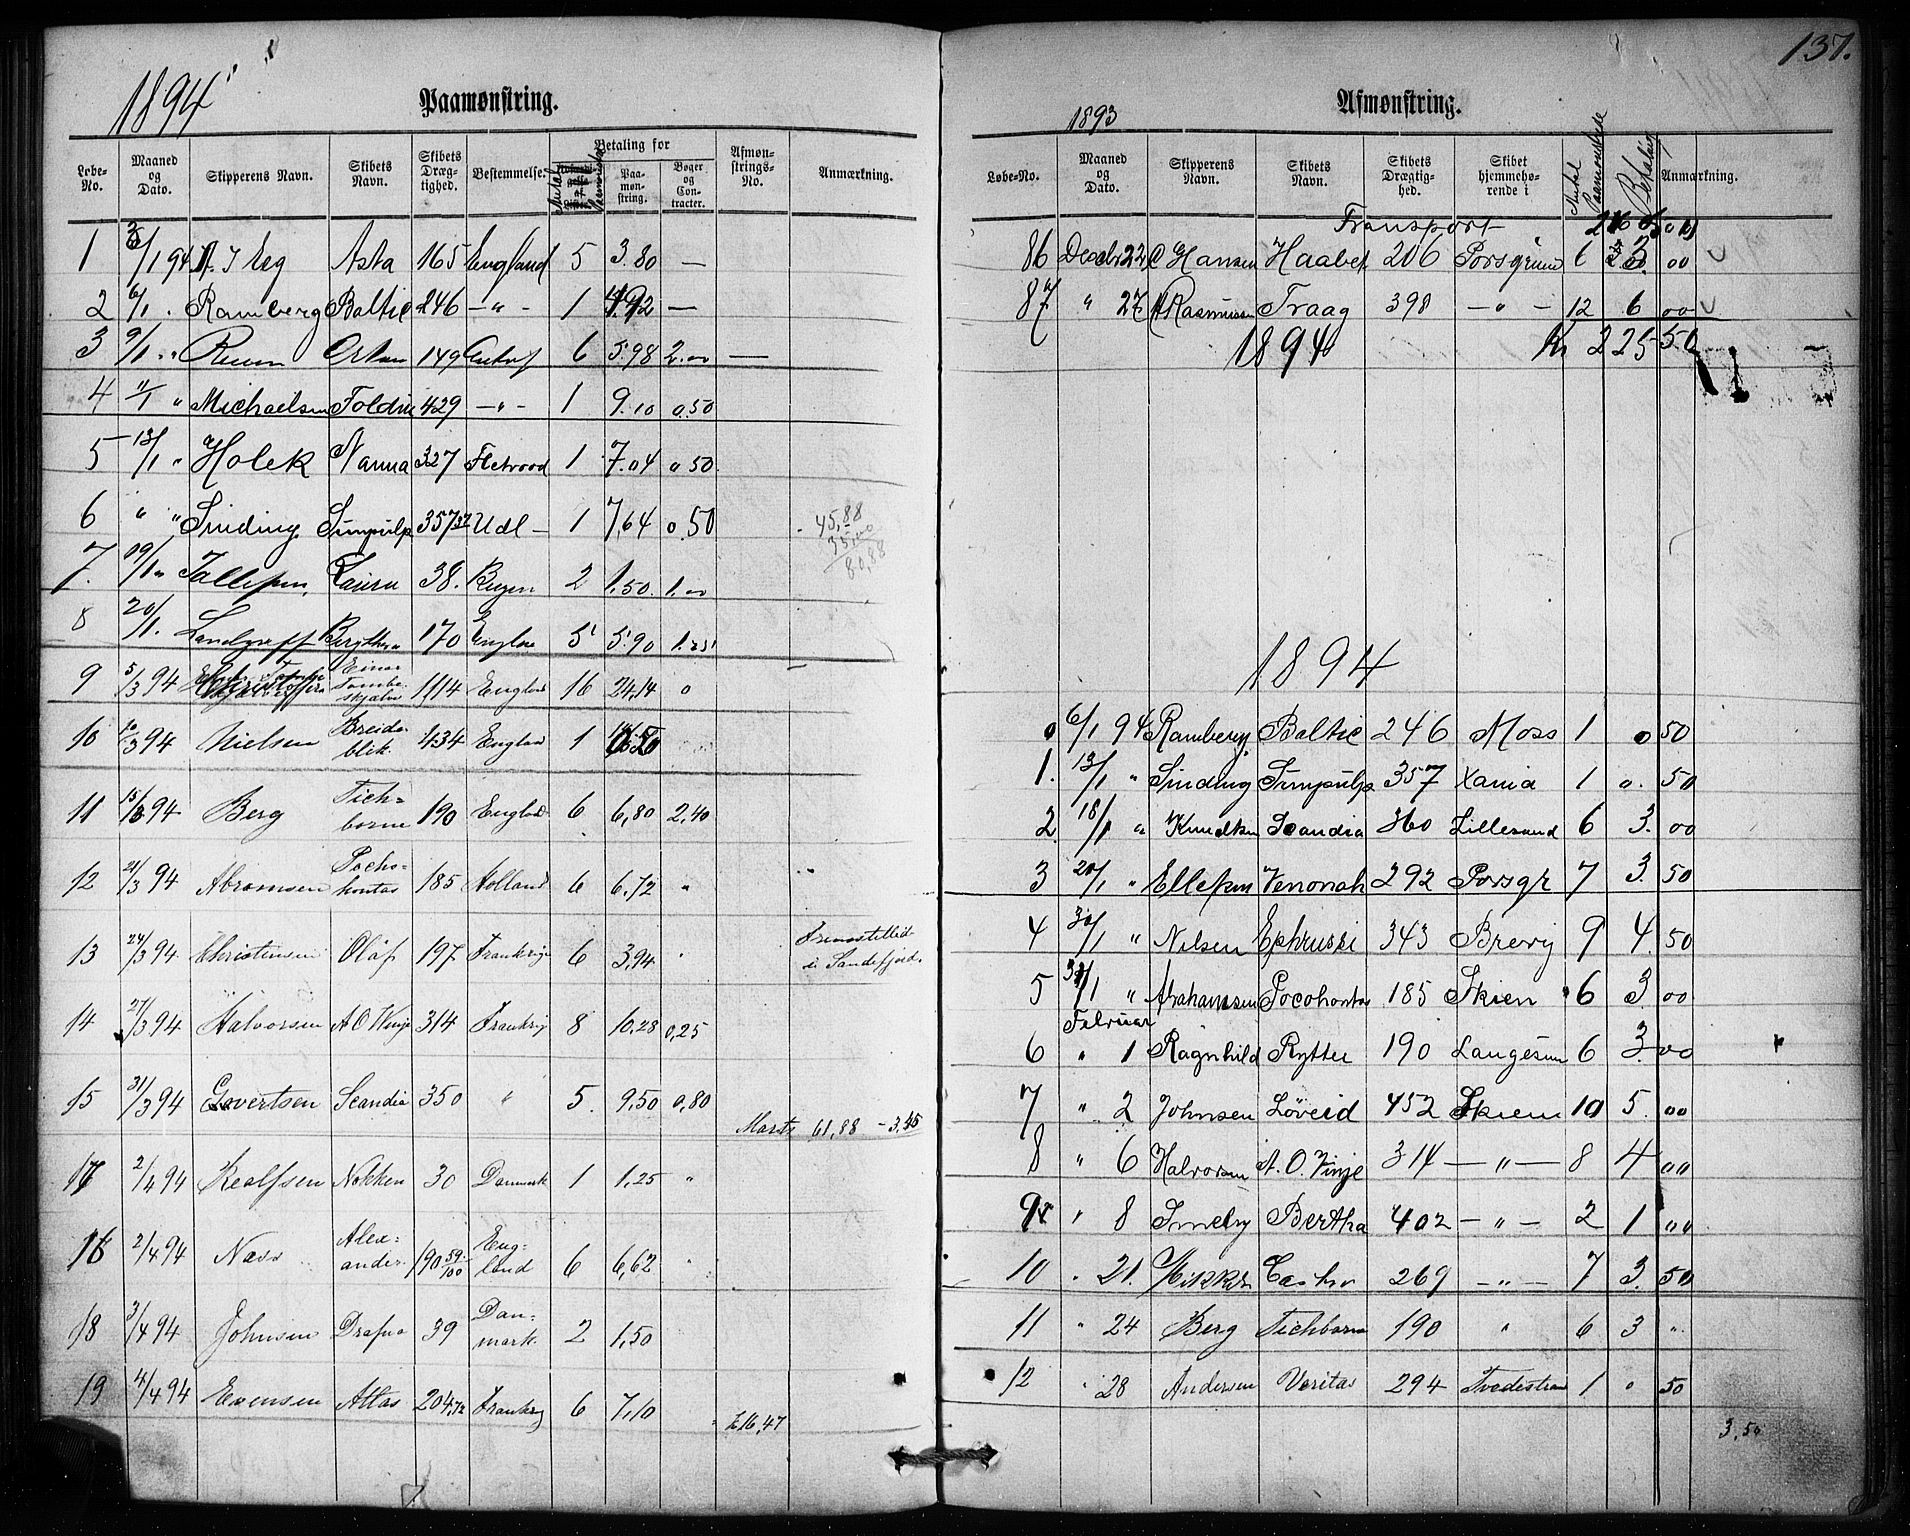 1894
Paamønstring.
Løbe-No. Maaned og Dato. Skipperens Navn. Skibets Navn. Skibets Drægtighed. Bestemmelse. Antal Paamønstrede Betaling for Paamønstring. Bøger og Contracter. Afmønstrings-No. Anmærkning.
1 94 Asta 165 England 5 3.80 —
2 6/1 Ramberg Baltic 246 — " — 1 —
3 9/1 " 149 6 5.98 2.00 —
4 11/1 " Michaelsen Foldin 429 — " — 1 9.10 0.50
5 13/1 " Holck Nanna 327 Fletwood 1 7.04 0 50
6 " " Sinding 357 Udl — 1 7,64 0.50 45,88
35,00
80,88
7. 19/1 " Laura 38. 2 1.50. 1.00
8 20/1. 170 5 5.90
9 5/3 94 Einar Tambeskjelver 1114 England 16 24,14 0
10 10/3 94 Nielsen Breidablik 434 England 1
11 15/3 94 Berg Tichborne 190 England 6 6,80 2,40
12 21/3 94 Abramsen Pochohontas 185 Holland 6 6,72 "
13 24/3 94 Christensen Olaf 197 Frankrige 6 3,94 " i Sandefjord.
14 27/3 94 Halvorsen A O Winje 314 Frankrig 8 10,28 0,25
15 31/3 94 Govertsen Scandia 350 " 5. 9,50 0,80
Marts 61,88 — 3,45
17 2/4 94 Nøkken 30 Danmark 1 1,25 "
16 2/4 94 Alexander 190 59/100 England 6 6,62 "
18 3/4 94 Johnsen 39 Danmark. 2 1,50
19 4/4 94 Evensen Atlas 204,72 Frankrig 6 7,10
16,47
137.
Afmønstring.
1893
Løbe-No. Maaned og Dato. Skipperens Navn. Skibets Navn. Skibets Drægtighed. Skibet hjemmehørende i Antal Paamønstrede Betaling Anmærkning.
Transport
86 Decbr 22 C Hansen Haabet 206 Porsgrund 6 3 00
87 " 27 Rasmussen Traag 398 — " — 12 6 00
1894 Kr 225 50
1894
0 6/1 94 Ramberg Baltic 246 Moss 1 0 50
1. 13/1 " Sinding 357 Xania 1 ". 50
2 18/1 " Knudsen Scandia 360 Lillesand 6 3. 00
3 20/1 " Ellefsen Venonah 292 Porsgr 7 3. 50
4 30/1 " Nilsen Ephrussi 343 Brevig 9 4. 50
5 31/1 " Abrahamsen Pocohontas 185 Skien 6 3. 00
Februar
6 " 1 Ragnhild Rytter 190 Langesun 6 3. 00
7 " 2 Johnsen Løveid 452 Skien 10 5. 00
8 " 6 Halvorsen A. O. Vinje 314 — " — 8 4 00
9 " 8 Bertha 402 — " — 2 1 00
10 " 21. Castor 269 — " — 7 3. 50
11 " 24 Berg Tichborne 190 " 6 3 "
12 " 28 Andersen Veritas 294 Tvedestran 1 " 50
3,50